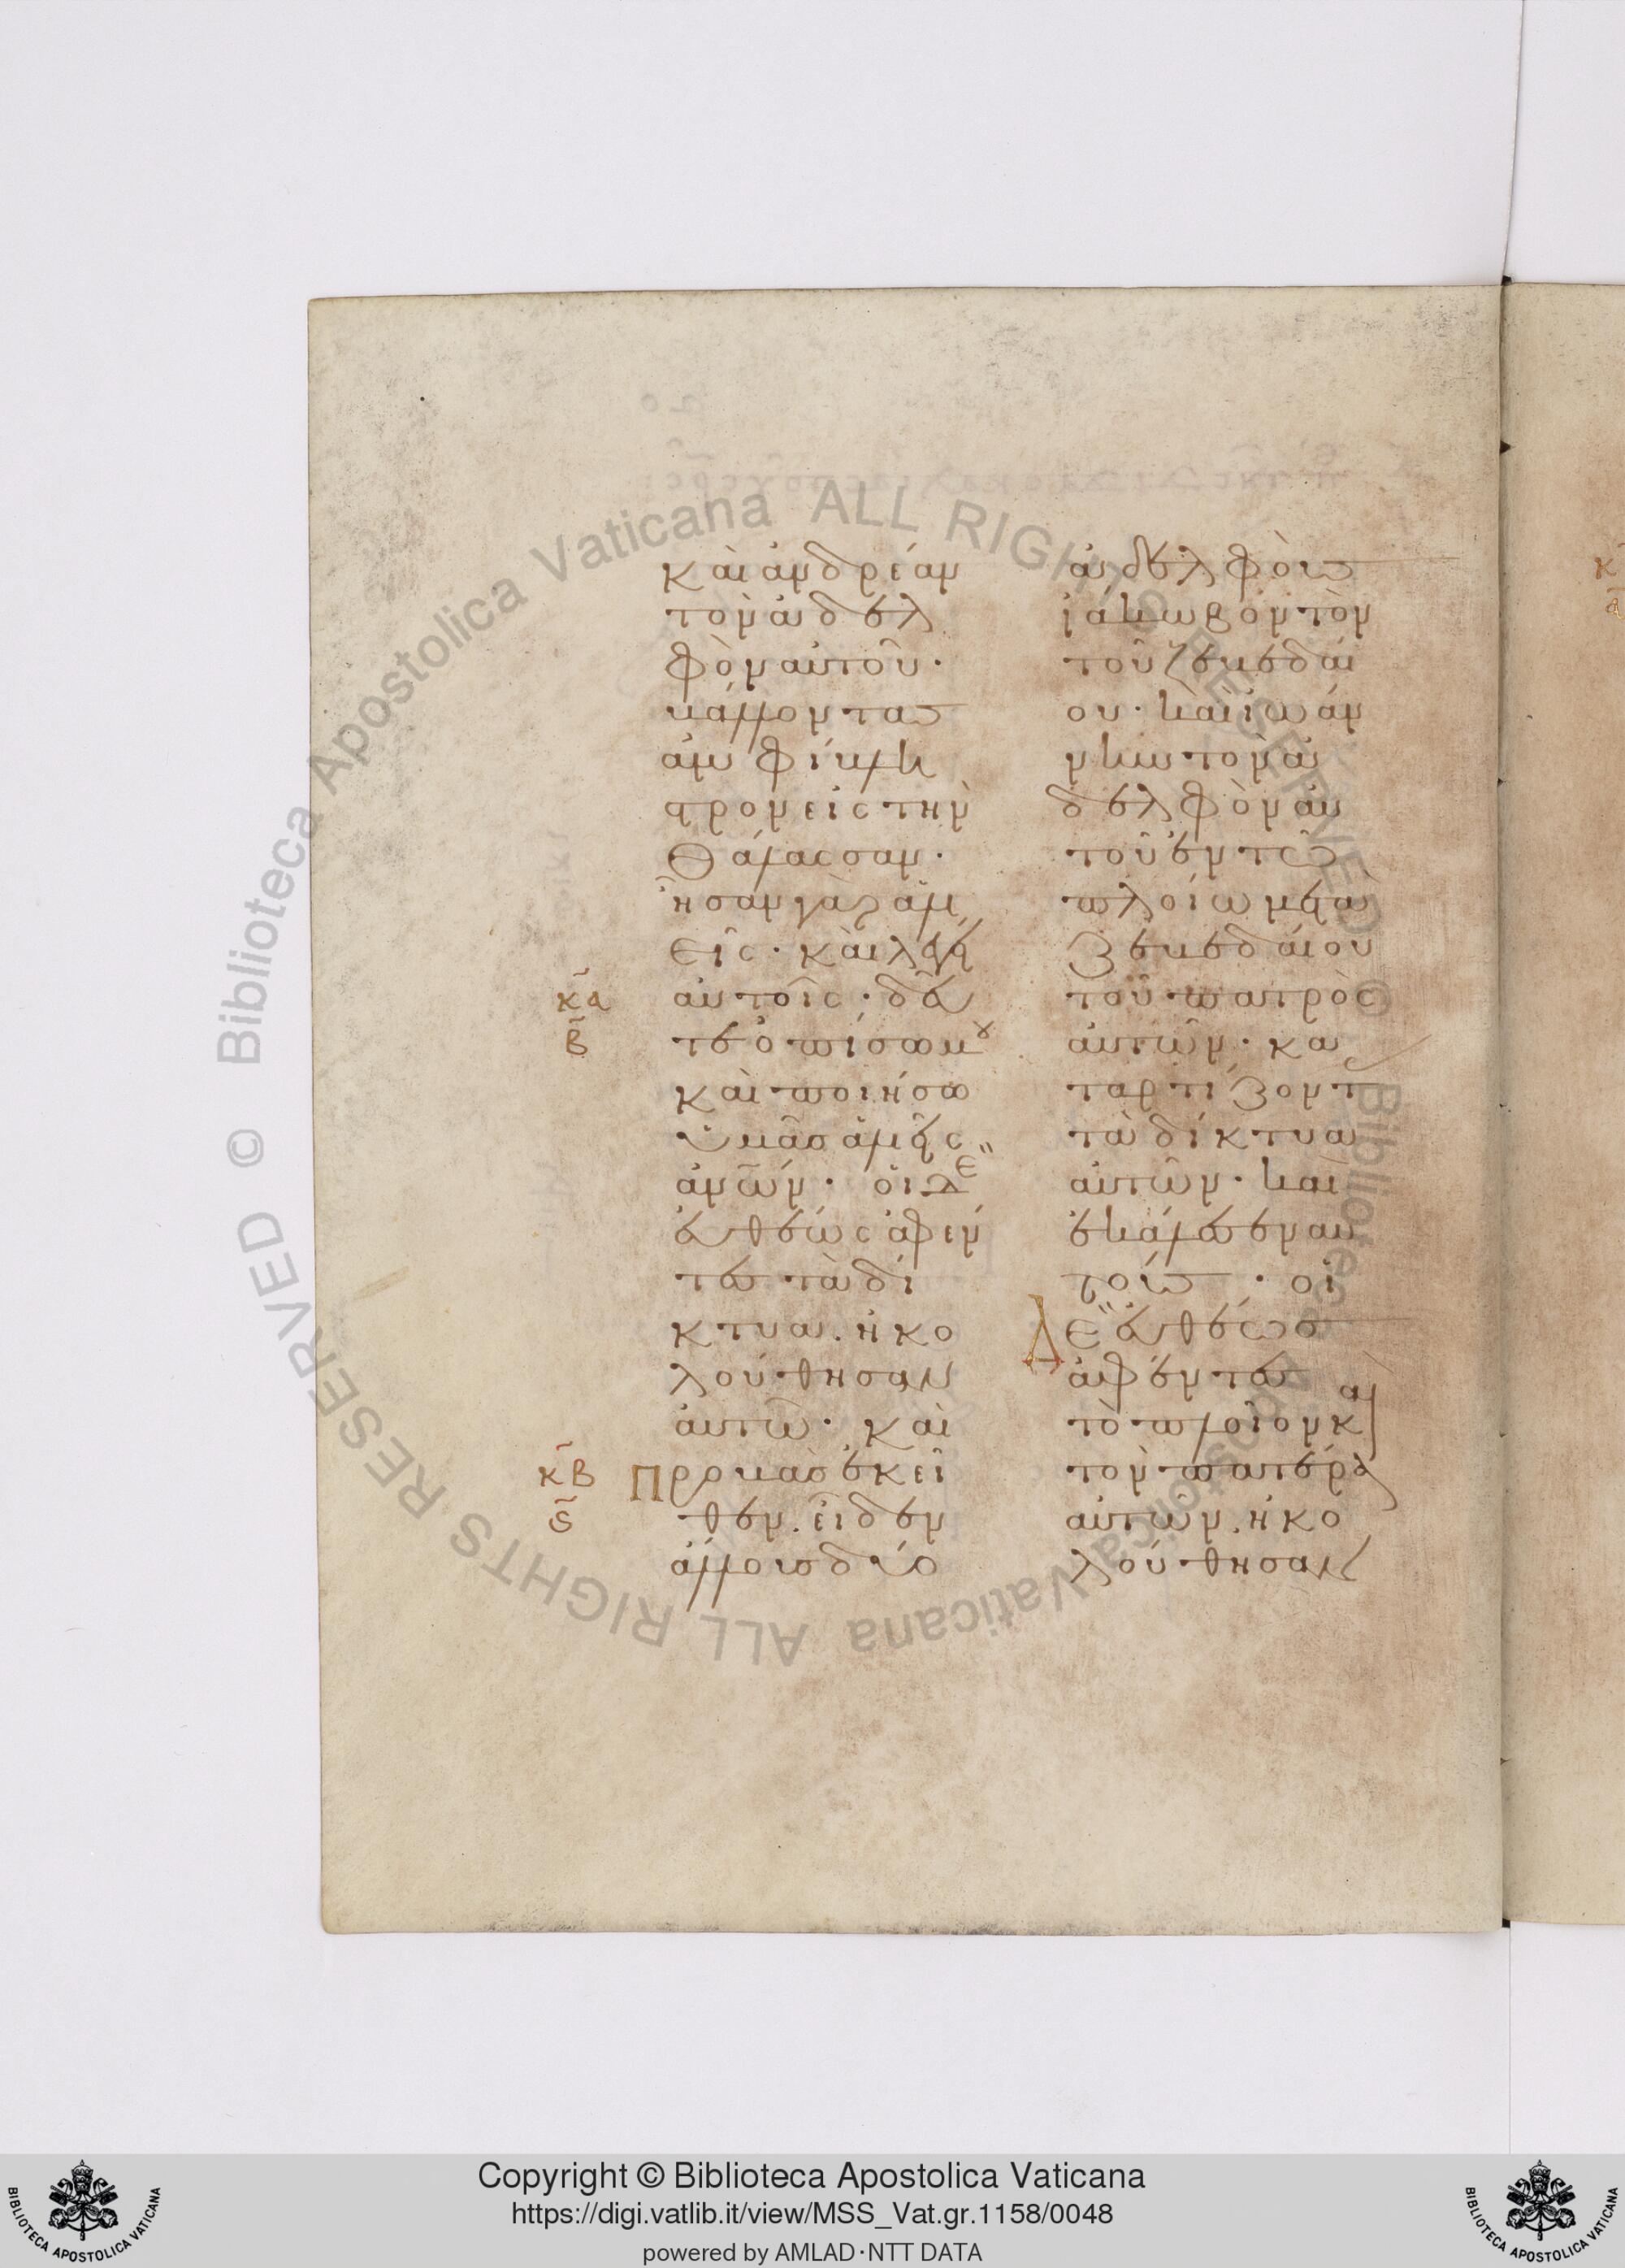 καὶ ἀνδρέαν
τὸν ἀδελ
φὸν αὐτοῦ·
βάλλοντας
ἀμφίβλη
στρον εἰς τὴν
θάλασσαν·
ἦσαν γὰρ ἁλι
εῖς· καὶ λέγει
κα
αὐτοῖς· δεῦ
β
τε ὀπίσω μου
καὶ ποιήσω
ὑμᾶς ἁλιεῖς
ἀνῶν· οἱ δὲ
εὐθέως ἀφέν
τες τὰ δί
κτυα. ἠκο
λούθησαν
αὐτῶ· καὶ
κβ
Προβὰς ἐκεῖ
ς
θεν. εἶδεν
ἄλλους δύο
ἀδελφοὺς
ἰάκωβον τὸν
τοῦ ζεβεδαί
ου· καὶ ἰωάν
νην τὸν ἀ
δελφὸν αὐ
τοῦ ἐν τῶ
πλοίω μετὰ
ζεβεδαίου
τοῦ πατρὸς
αὐτῶν· κα
ταρτίζοντας
τὰ δίκτυα
αὐτῶν· καὶ
ἐκάλεσεν αὐ
τούς· οἱ
Δὲ εὐθέως
ἀφέντες
τὸ πλοῖον καὶ
τὸν πατέρα
αὐτῶν. ἠκο
λούθησαν
© Biblioteca Apostolica Vaticana ALL RIGHTS RESERVED © Biblioteca Apostolica Vaticana ALL RIGHTS RESERVED
Copyright © Biblioteca Apostolica Vaticana
https://digi.vatlib.it/view/MSS_Vat.gr.1158/0048
powered by AMLAD·NTT DATA
BIBLIOTECA APOSTOLICA VATICANA
BIBLIOTECA APOSTOLICA VATICANA